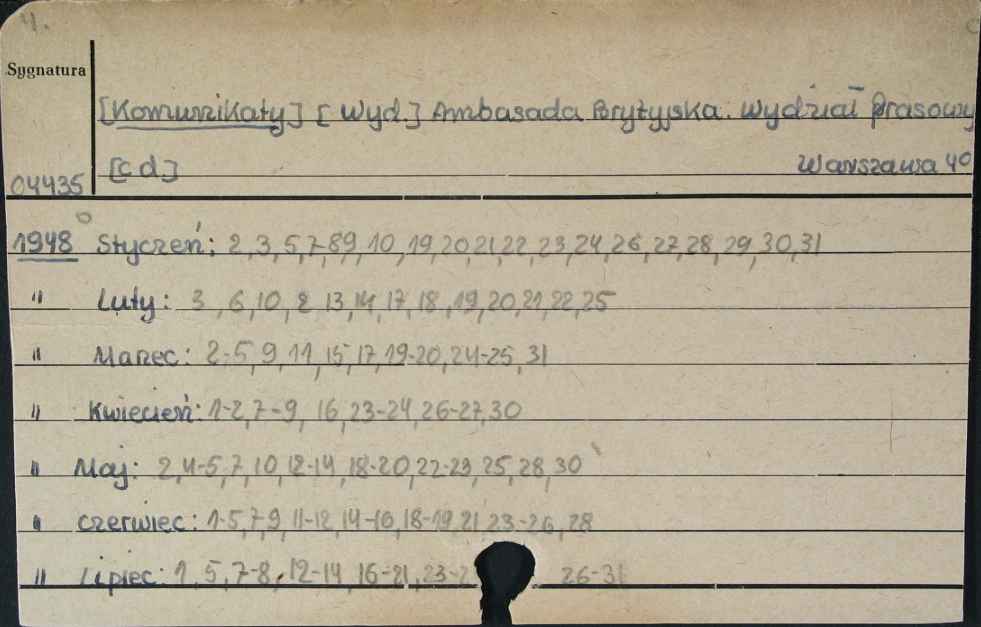 4.
Sygnatura
[Komunikaty] [Wyd.] Ambasada Brytyjska. Wydział Prasowy
[cd] Warszawa 4°
04435
1948 Styczeń: 2,3,5,7-8,9,10,19,20,21,22,23,24,26,27,28,29,30,31
" Luty: 3,6,10,2,13,14,17,18,19,20,21,22,25
" Marzec: 2-5,9,11,15,17,19-20,24-25,31
" Kwiecień: 1-2,7-9,16,23-24,26-27,30
" Maj: 2,4-5,7,10,12-14,18-20,22-23,25,28,30
" Czerwiec: 1-5,7,9,11-12,14-16,18-19,21,23-26,28
" Lipiec: 1,5,7-8,12-14,16-21,23-2 26-31